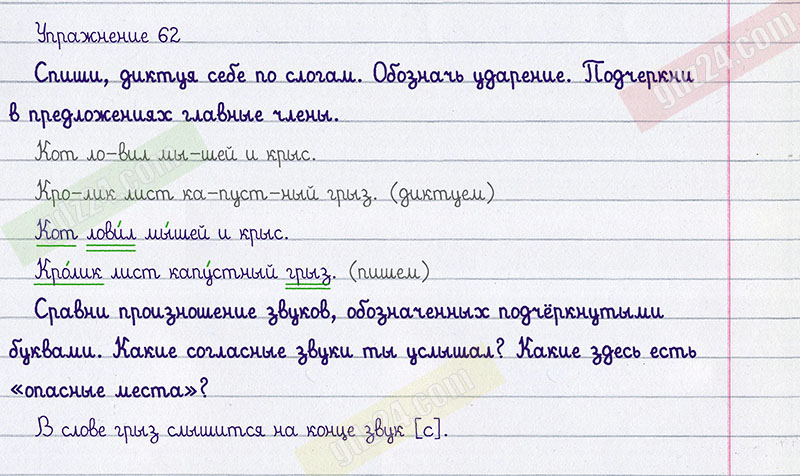 Упражнение 62
Спиши, диктуя себе по слогам. Обозначь ударение. Подчеркни
в предложениях главные члены.
Кот ло-вил мы-шей и крыс.
Кро-лик лист ка-пуст-ный грыз. (диктуем)
Кот лови́л мы́шей и крыс.
Кро́лик лист капу́стный грыз. (пишем)
Сравни произношение звуков, обозначенных подчёркнутыми
буквами. Какие согласные звуки ты услышал? Какие здесь есть
«опасные места»?
В слове грыз слышится на конце звук [с].
gdz24.com
gdz24.com
gdz24.com